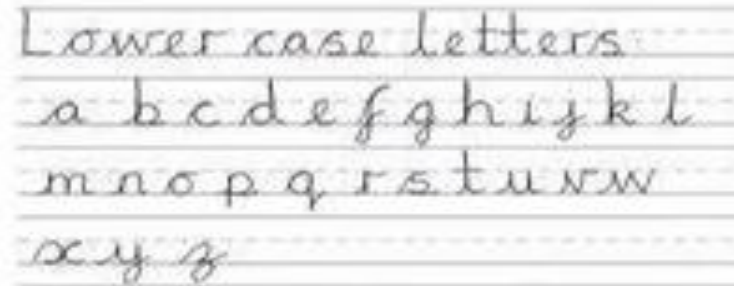 Lower case letters
a b c d e f g h i j k l
m n o p q r s t u v w
x y z